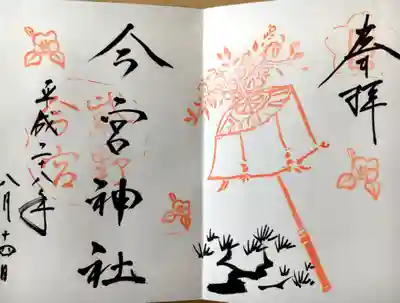 奉拝
今宮神社
平成二十八年
八月十四日